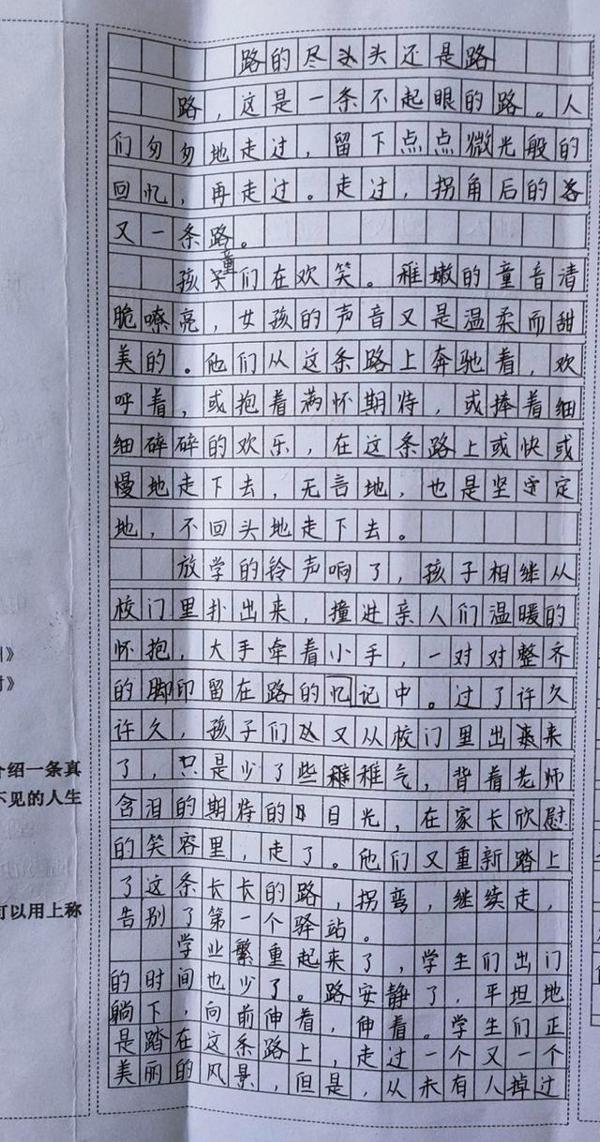 路的尽头还是路
路，这是一条不起眼的路。人
们匆匆地走过，留下点点微光般的
回忆，再走过。走过，拐角后的各
又一条路。
孩童们在欢笑。稚嫩的童音清
脆嘹亮，女孩的声音又是温柔而甜
美的。他们从这条路上奔驰着，欢
呼着，或抱着满怀期待，或捧着细
细碎碎的欢乐，在这条路上或快或
慢地走下去，无言地，也是坚定
地，不回头地走下去。
放学的铃声响了，孩子相继从
校门里扑出来，撞进亲人们温暖的
怀抱，大手牵着小手，一对对整齐
的脚印留在路的忆记中。过了许久
许久，孩子们又从校门里出来
了，只是少了些稚气，背着老师
含泪的期待的目光，在家长欣慰
的笑容里，走了。他们又重新踏上
了这条长长的路，拐弯，继续走，
告别了第一个驿站。
学业繁重起来了，学生们出门
的时间也少了。路安静了，平坦地
躺下，向前伸着，伸着。学生们正
是踏在这条路上，走过一个又一个
美丽的风景，但是，从未有人掉过
》
》
介绍一条真
不见的人生
可以用上称